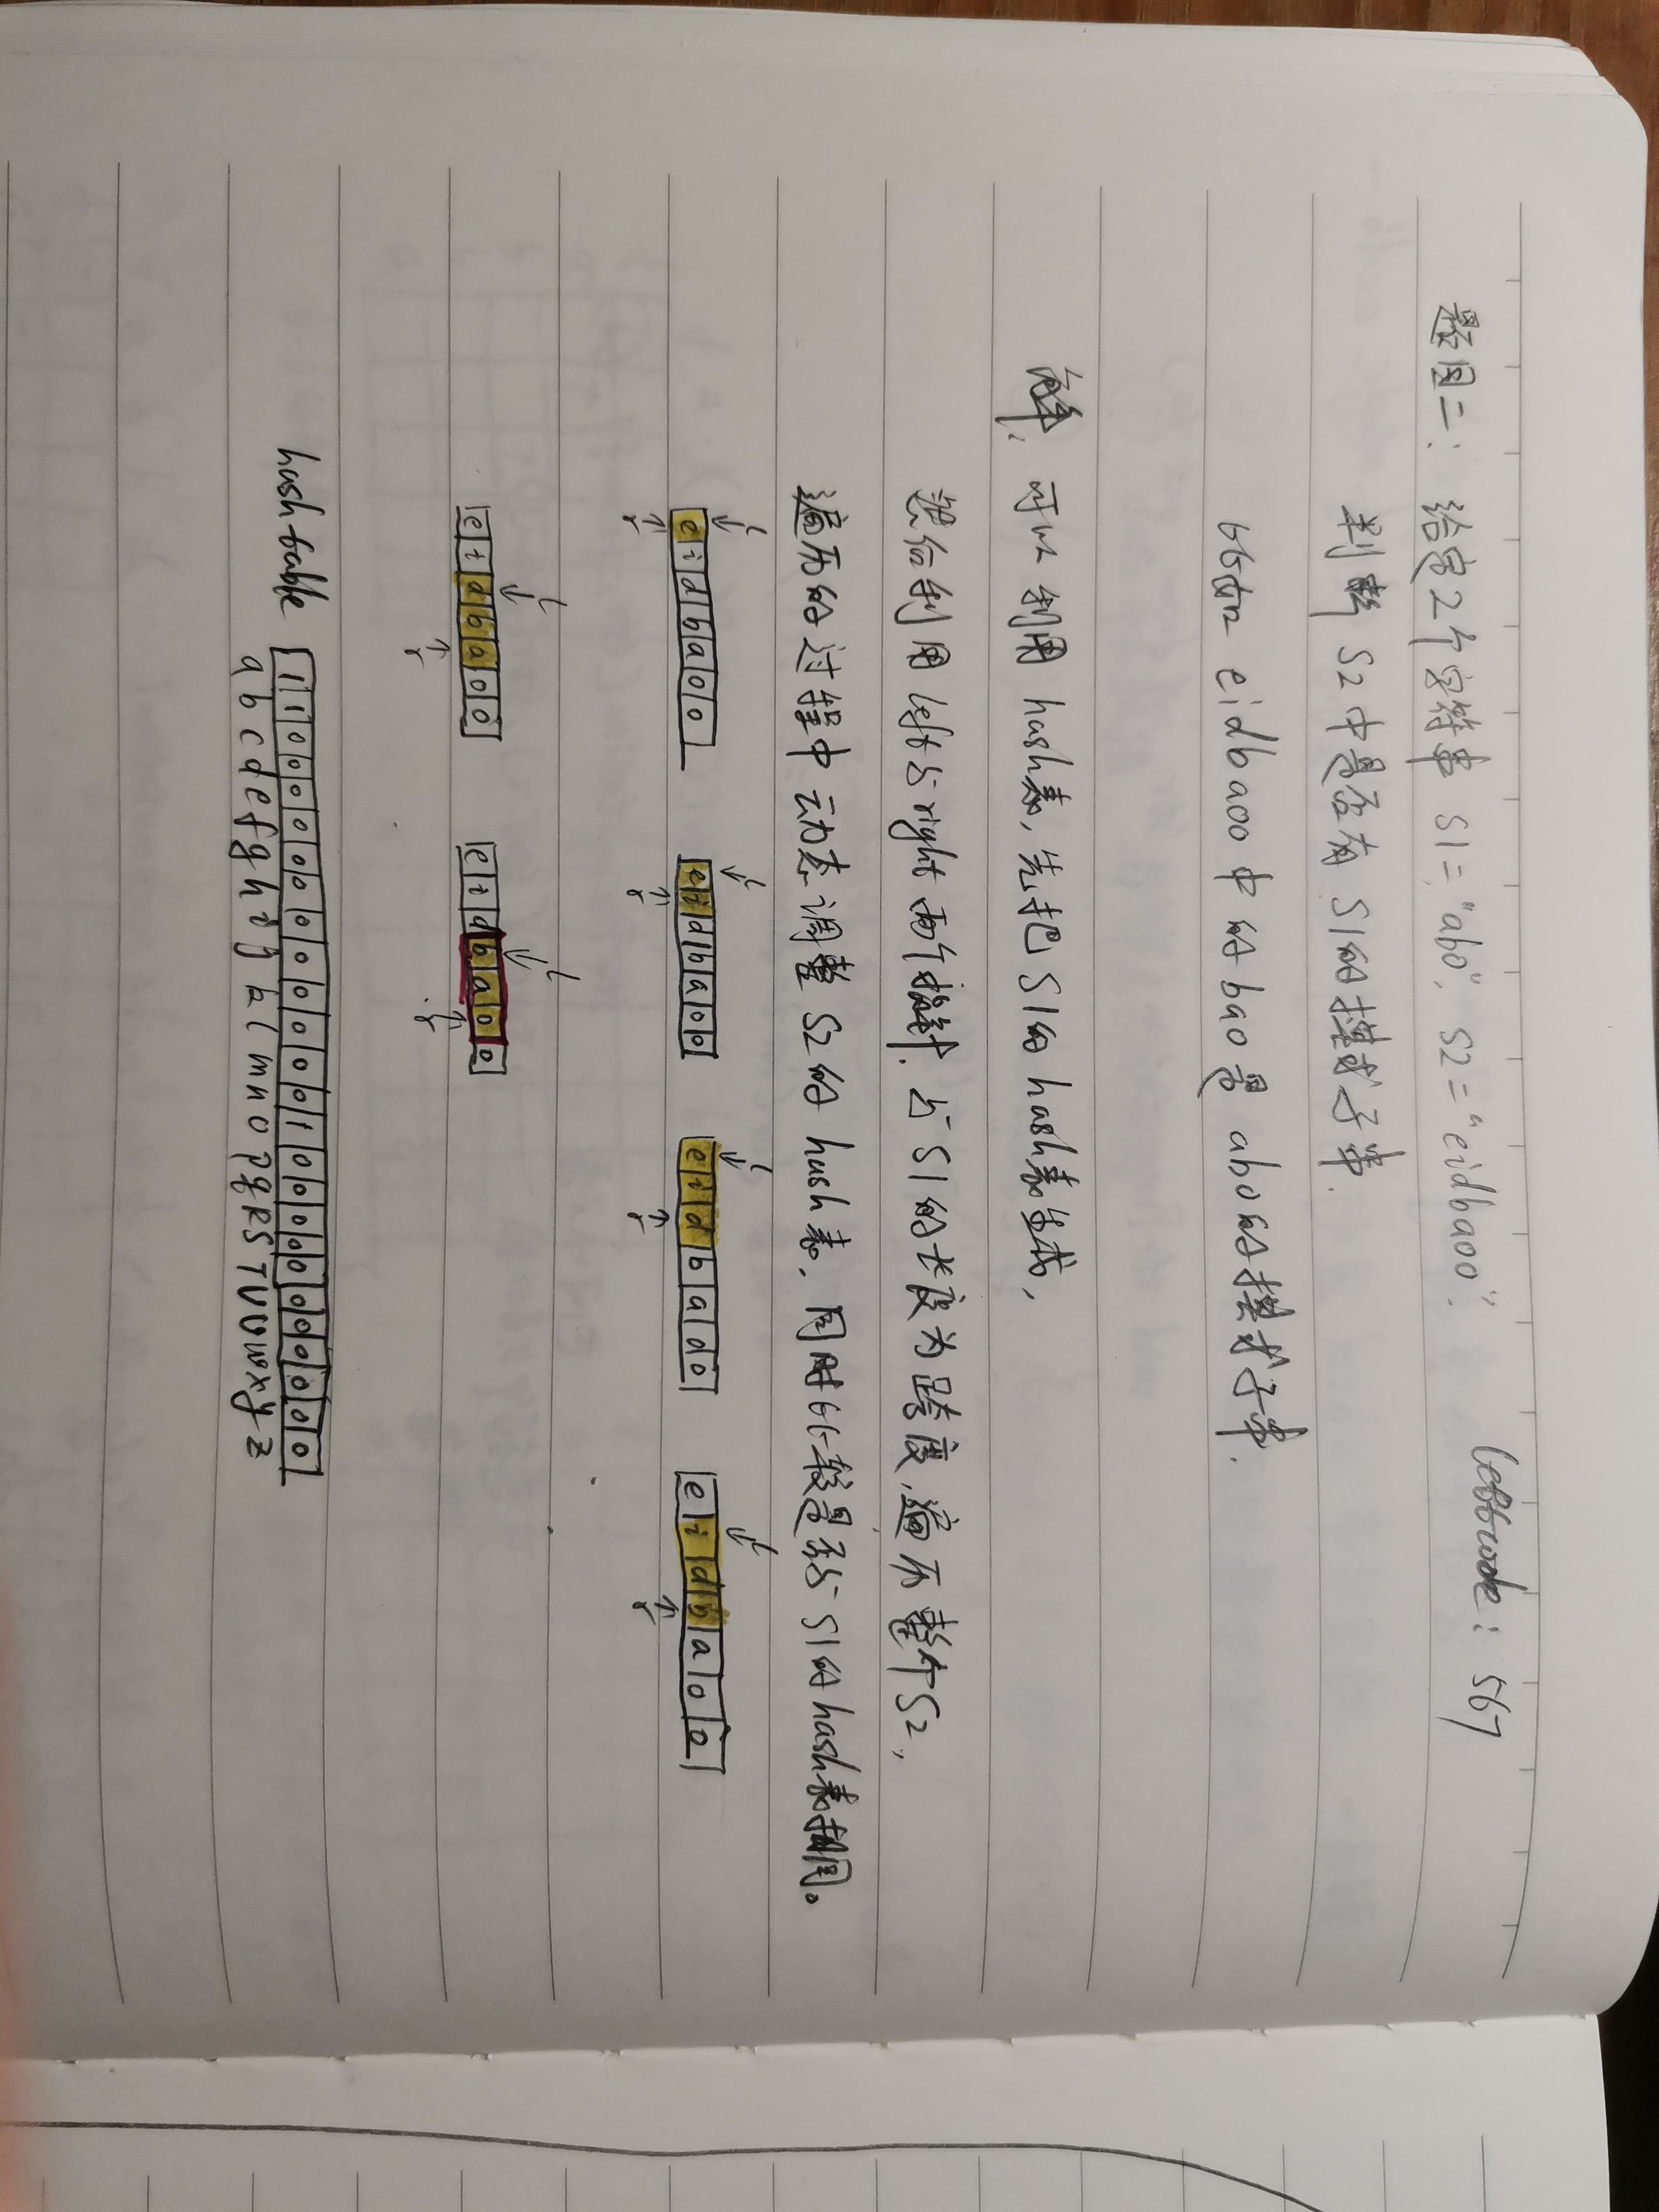 leetcode: 567
题目二: 给定2个字符串 S1="abo", S2="eidbaoo".
判断 S2中是否有 S1的模式子串.
比如 eidbaoo 中的bao是 abo的模式子串.
解, 可以利用 hash表, 先把S1的hash表生成,
然后利用 left与right 两个指针, 与S1的长度为跨度, 遍历整个S2,
遍历的过程中动态调整 S2的 hash表, 同时比较是否与 S1的hash表相同。
l l l l
e i d b a o o e i d b a o o e i d b a o o e i d b a o o
r r r r
l l
e i d b a o o e i d b a o o
r r
hash table 1 1 0 0 0 0 0 0 0 0 0 0 0 0 1 0 0 0 0 0 0 0 0 0 0 0
a b c d e f g h i j k l m n o p q R S T U V w x y z